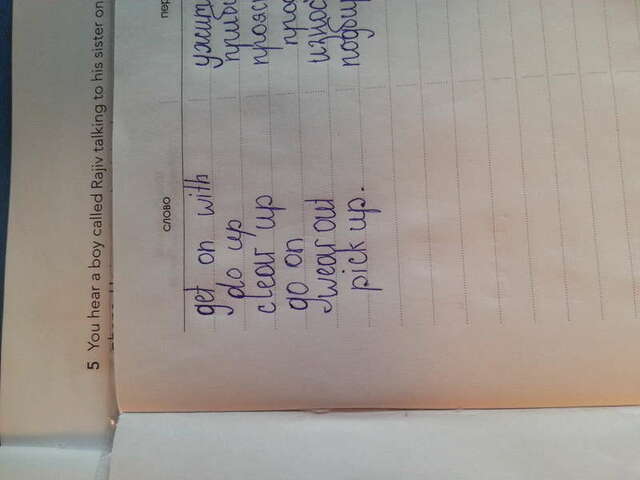 5 You hear a boy called Rajiv talking to his sister on
слово пер
get on with ужит
do up
clear up прояс
go on про
wear out износ
pick up. подби